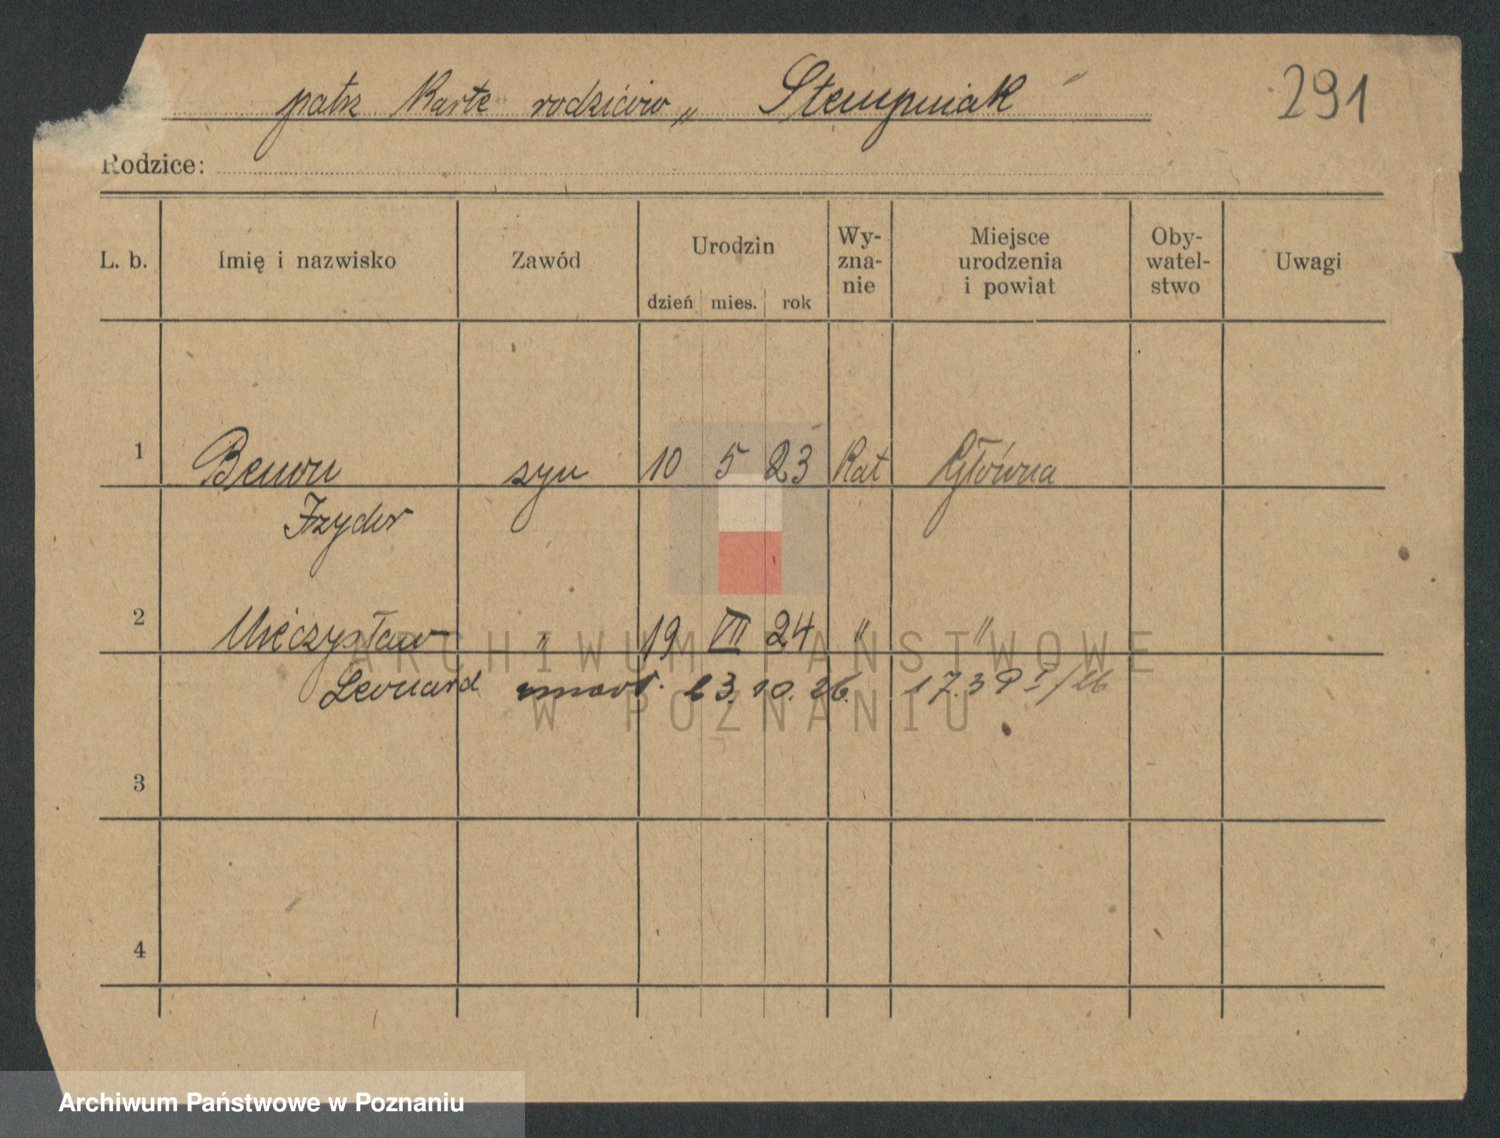 291
patrz Kartę rodziców „Stempniak"
Rodzice:
L. b. Imię i nazwisko Zawód Urodzin dzień mies. rok Wy-zna-nie Miejsce urodzenia i powiat Oby-watel-stwo Uwagi
1 Benon syn 10 5 23 Kat Główna
Izydor
2 Mieczysław " 19 VII 24 " "
Leonard zmarł. 23.10.26. 17.39 I/26
3
4
ARCHIWUM PAŃSTWOWE
W POZNANIU
Archiwum Państwowe w Poznaniu